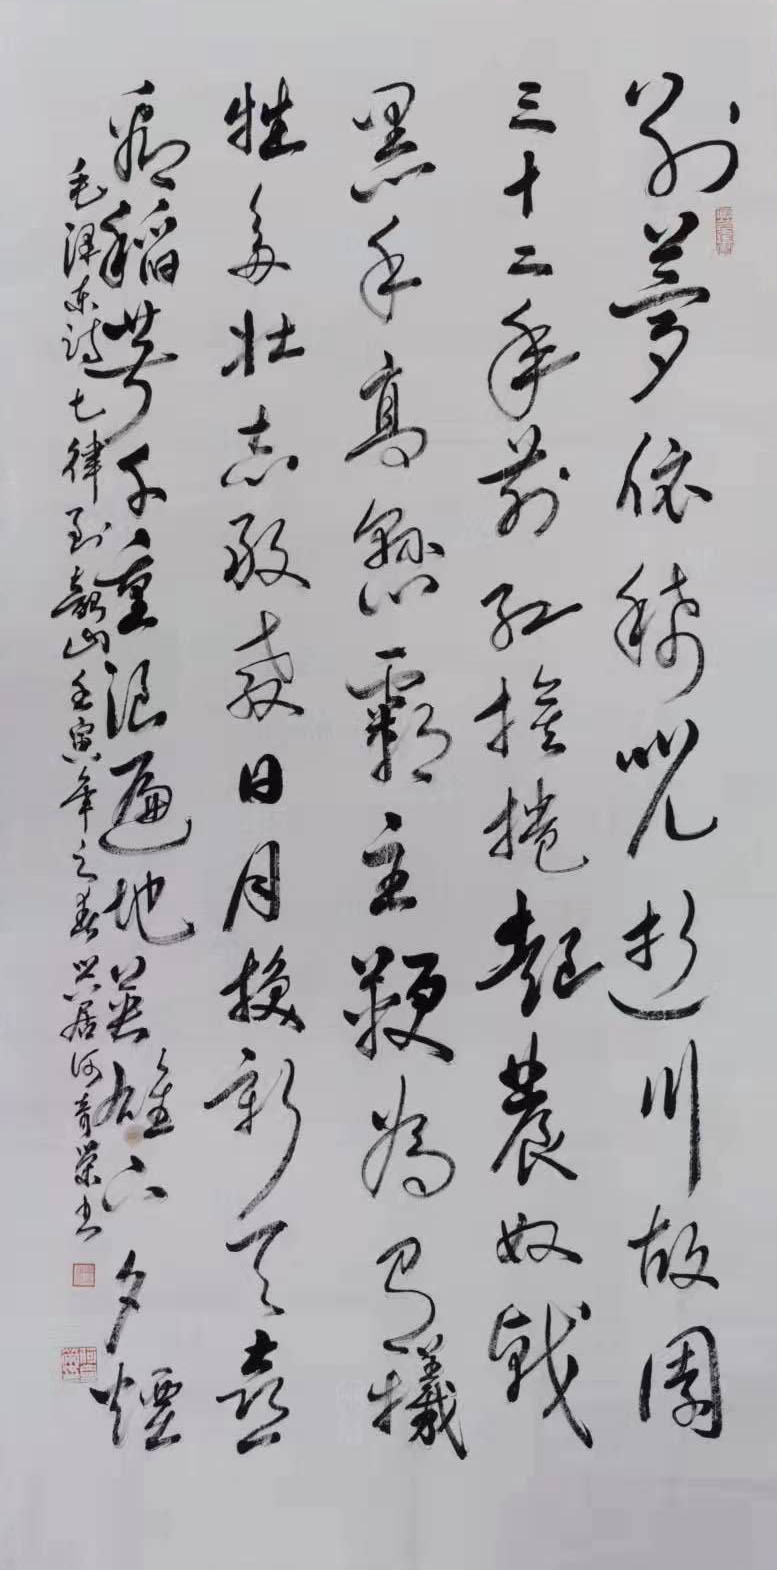 别夢依稀咒逝川故園
三十二年前紅旗捲起農奴戟
黑手高懸霸主鞭為有犧
牲多壯志敢教日月換新天喜
看稻菽千重浪遍地英雄下夕煙
毛泽东诗七律到韶山壬寅年之春居青榮书